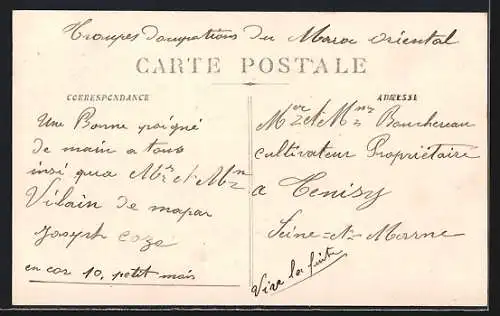 Troupes d'ocupations du Maroc Oriental
CARTE POSTALE
CORRESPONDANCE
Une Bonne poigné
de main a tous
insi qua Mr et Mm
Vilain de mapar
Joseph
en cor 10. petit mois
ADRESSE
Mer et Mme Bouchereau
cultivateur Propriétaire
a
Seine-et-Marne
Vive la fuite